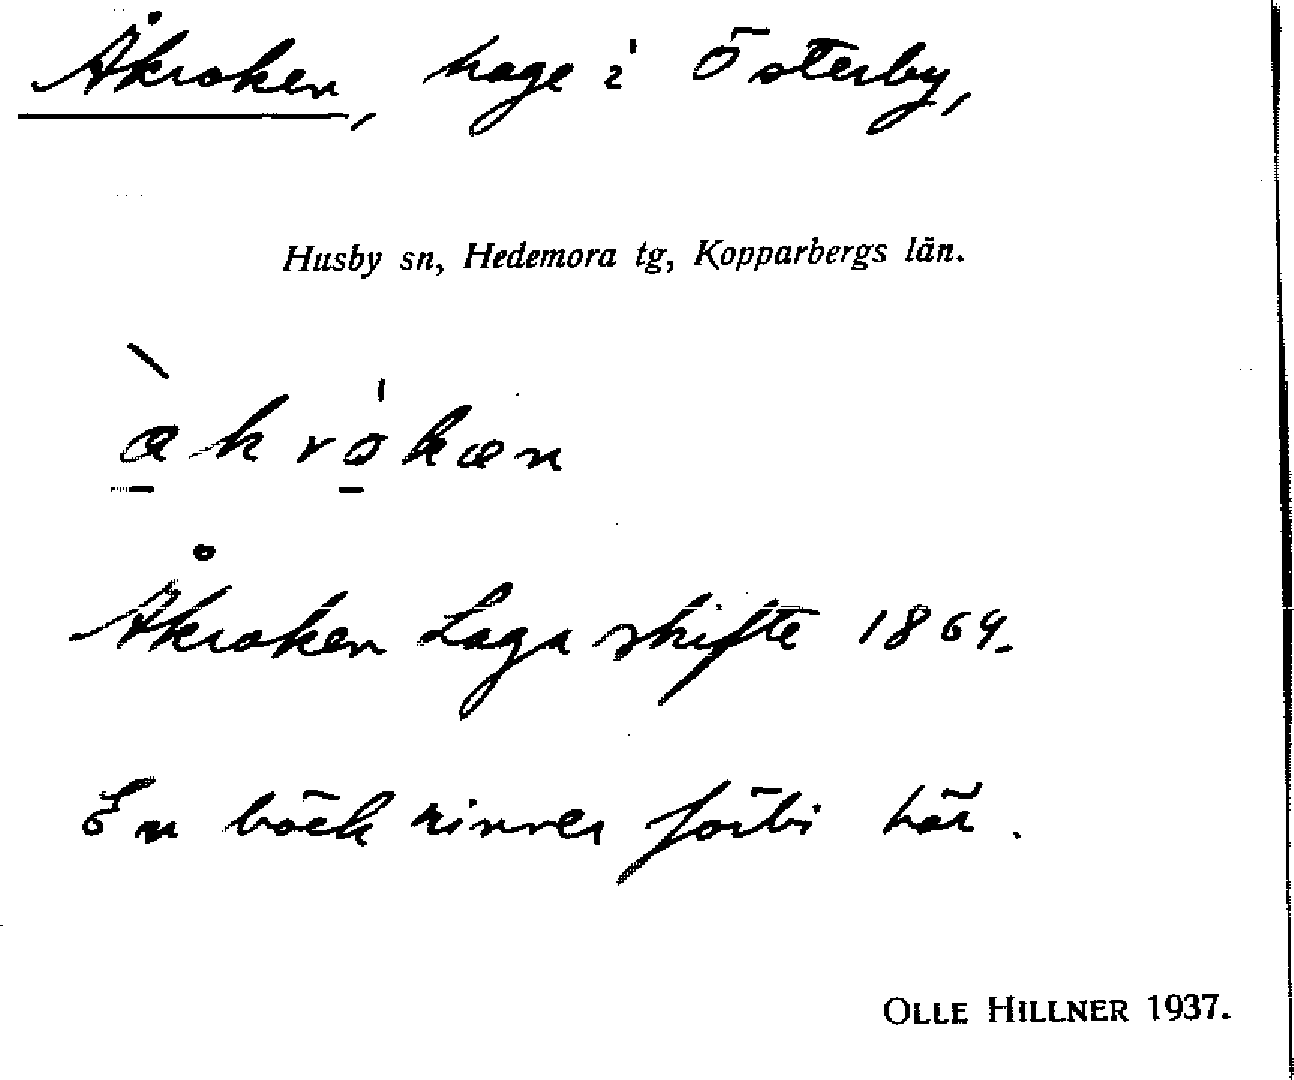 Åkroken, hage i Österby,
Husby sn, Hedemora tg, Kopparbergs län.
Åkroken Laga skifte 1864.
En bäck rinner förbi här.
OLLE HILLNER 1937.